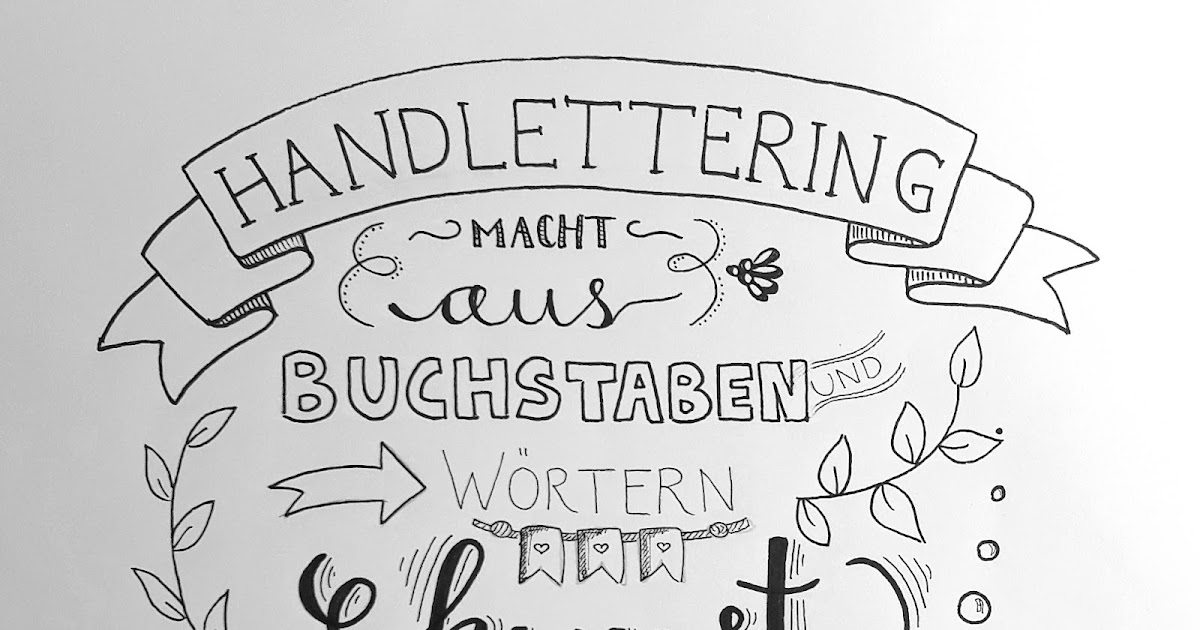 HANDLETTERING
MACHT
aus
BUCHSTABEN UND
WÖRTERN